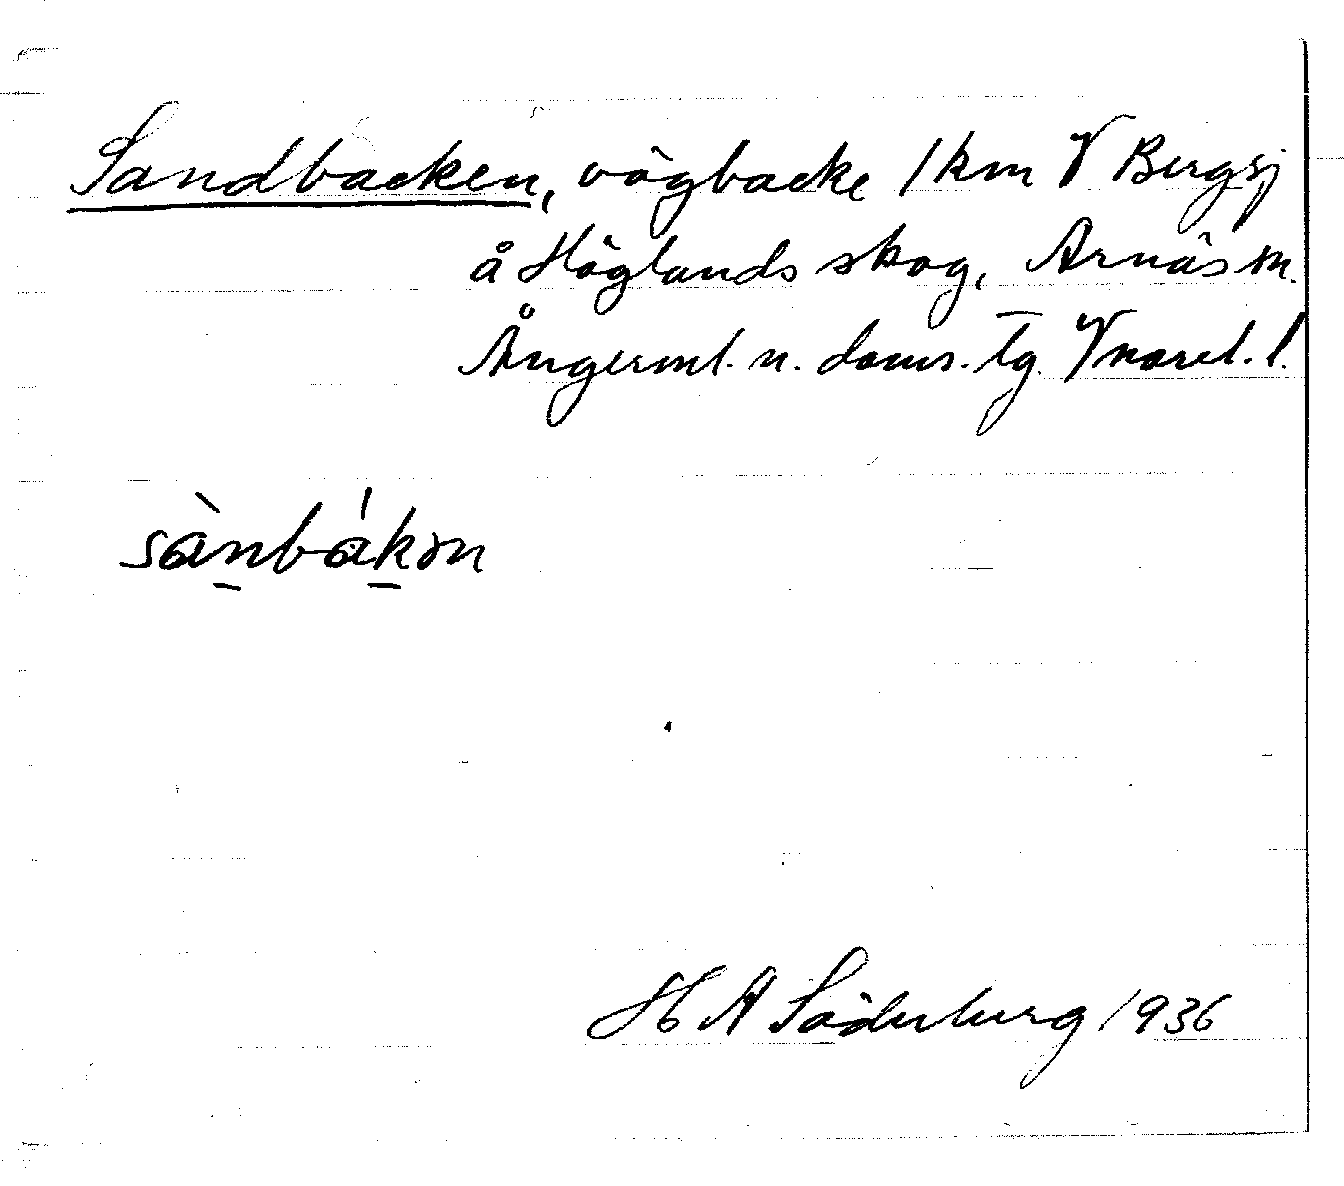 Sandbacken, vägbacke 1 km V Bergsj
å Höglands skog, Arnäs sn.
Ångerml. n. doms. tg. Vnorrl. l.
sànbákən
H A Söderberg 1936